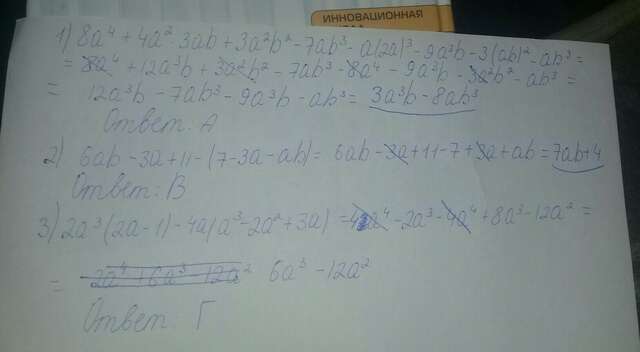 ИННОВАЦИОННАЯ
1) 8a⁴ + 4a² · 3ab + 3a²b² - 7ab³ - a(2a)³ - 9a³b - 3(ab)² - ab³ =
= 8a⁴ + 12a³b + 3a²b² - 7ab³ - 8a⁴ - 9a³b - 3a²b² - ab³ =
= 12a³b - 7ab³ - 9a³b - ab³ = 3a³b - 8ab³
Ответ: А
2) 6ab - 3a + 11 - (7 - 3a - ab) = 6ab - 3a + 11 - 7 + 3a + ab = 7ab + 4
Ответ: В
3) 2a³(2a - 1) - 4a(a³ - 2a² + 3a) = 4a⁴ - 2a³ - 4a⁴ + 8a³ - 12a² =
= 2a⁴ + 6a³ - 12a² 6a³ - 12a²
Ответ: Г